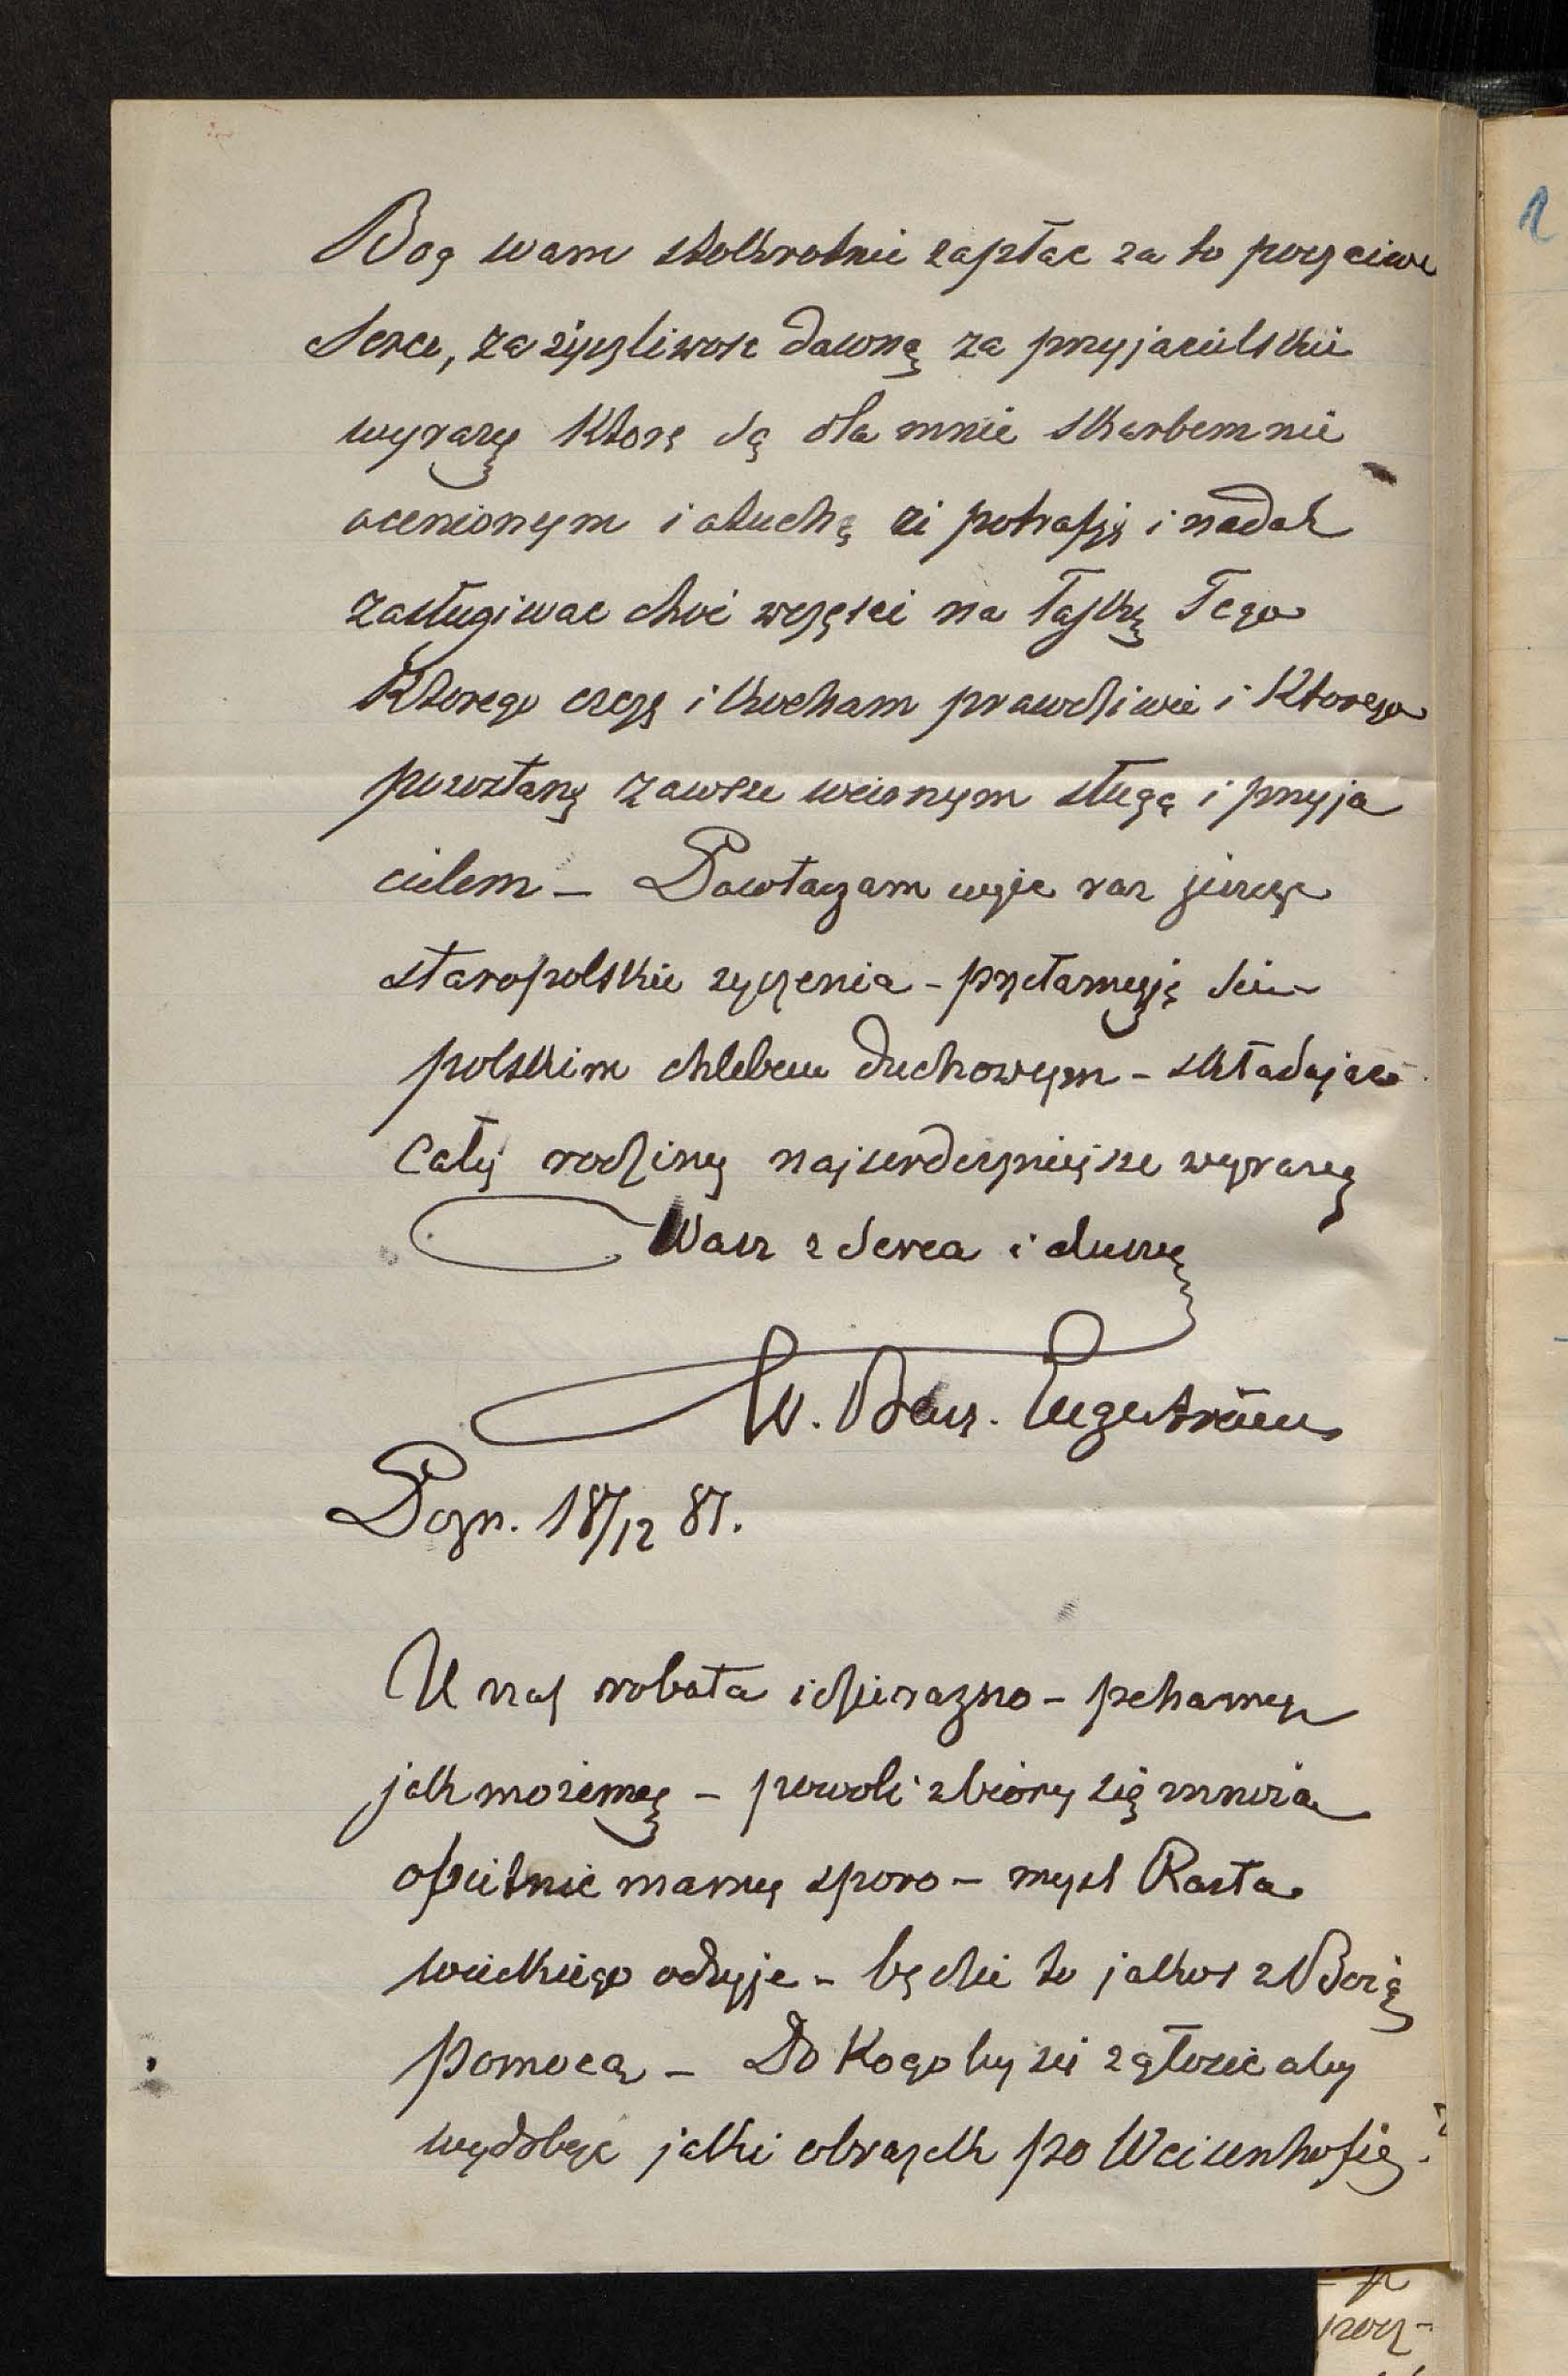 Bog wam stokrotnie zapłac za to poczciwe
Serce, za życzliwosc dawną za przyjacielskie
wyrazy ktore są dla mnie skarbem nie
ocenionym i otuchą ze potrafię i nadal
zasługiwac choc wczęsci na łaskę Tego
Ktorego czczę i kocham prawdziwie i Ktorego
pozostanę zawsze wciernym sługą i przyja
cielem – Powtarzam więc raz jeszcze
staropolskie zyczenia – przełamuję sie
polskim chlebem duchowym – składając
Całej rodziny najserdeczniejsze wyrazy
Wasz z Serca i duszy
W. Benz. Engeström
Pozn. 18/12 87.
U nas robota idzie razno – pchamy
jak mozemy – powoli zbiory się mnoża
opietnie mamy sporo – mysl Rasta
wieckiego odżyje – będzie to jakos z Bożą
pomocą – Do Kogo by się zgłosic aby
wydobyc jaki obrazek po Weisenhofie?
pocz-